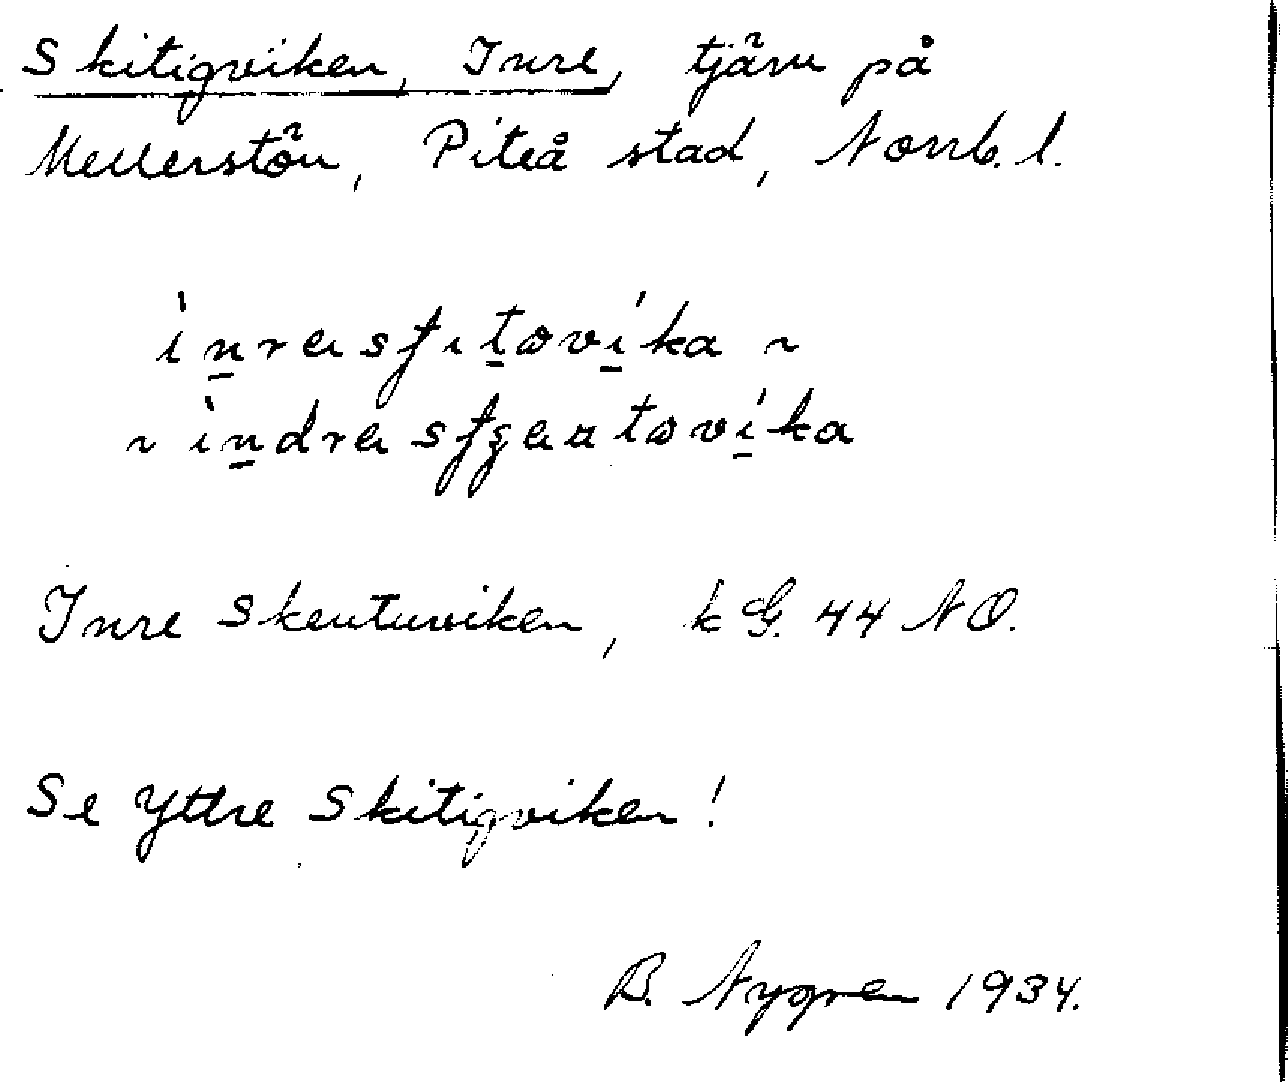 Skitigviken, Inre, tjärn på
Mellerstön, Piteå stad, Norrb. l.
Inre Skeutuviken, k G. 44 NO.
Se Yttre Skitigviken!
B. Nygren 1934.